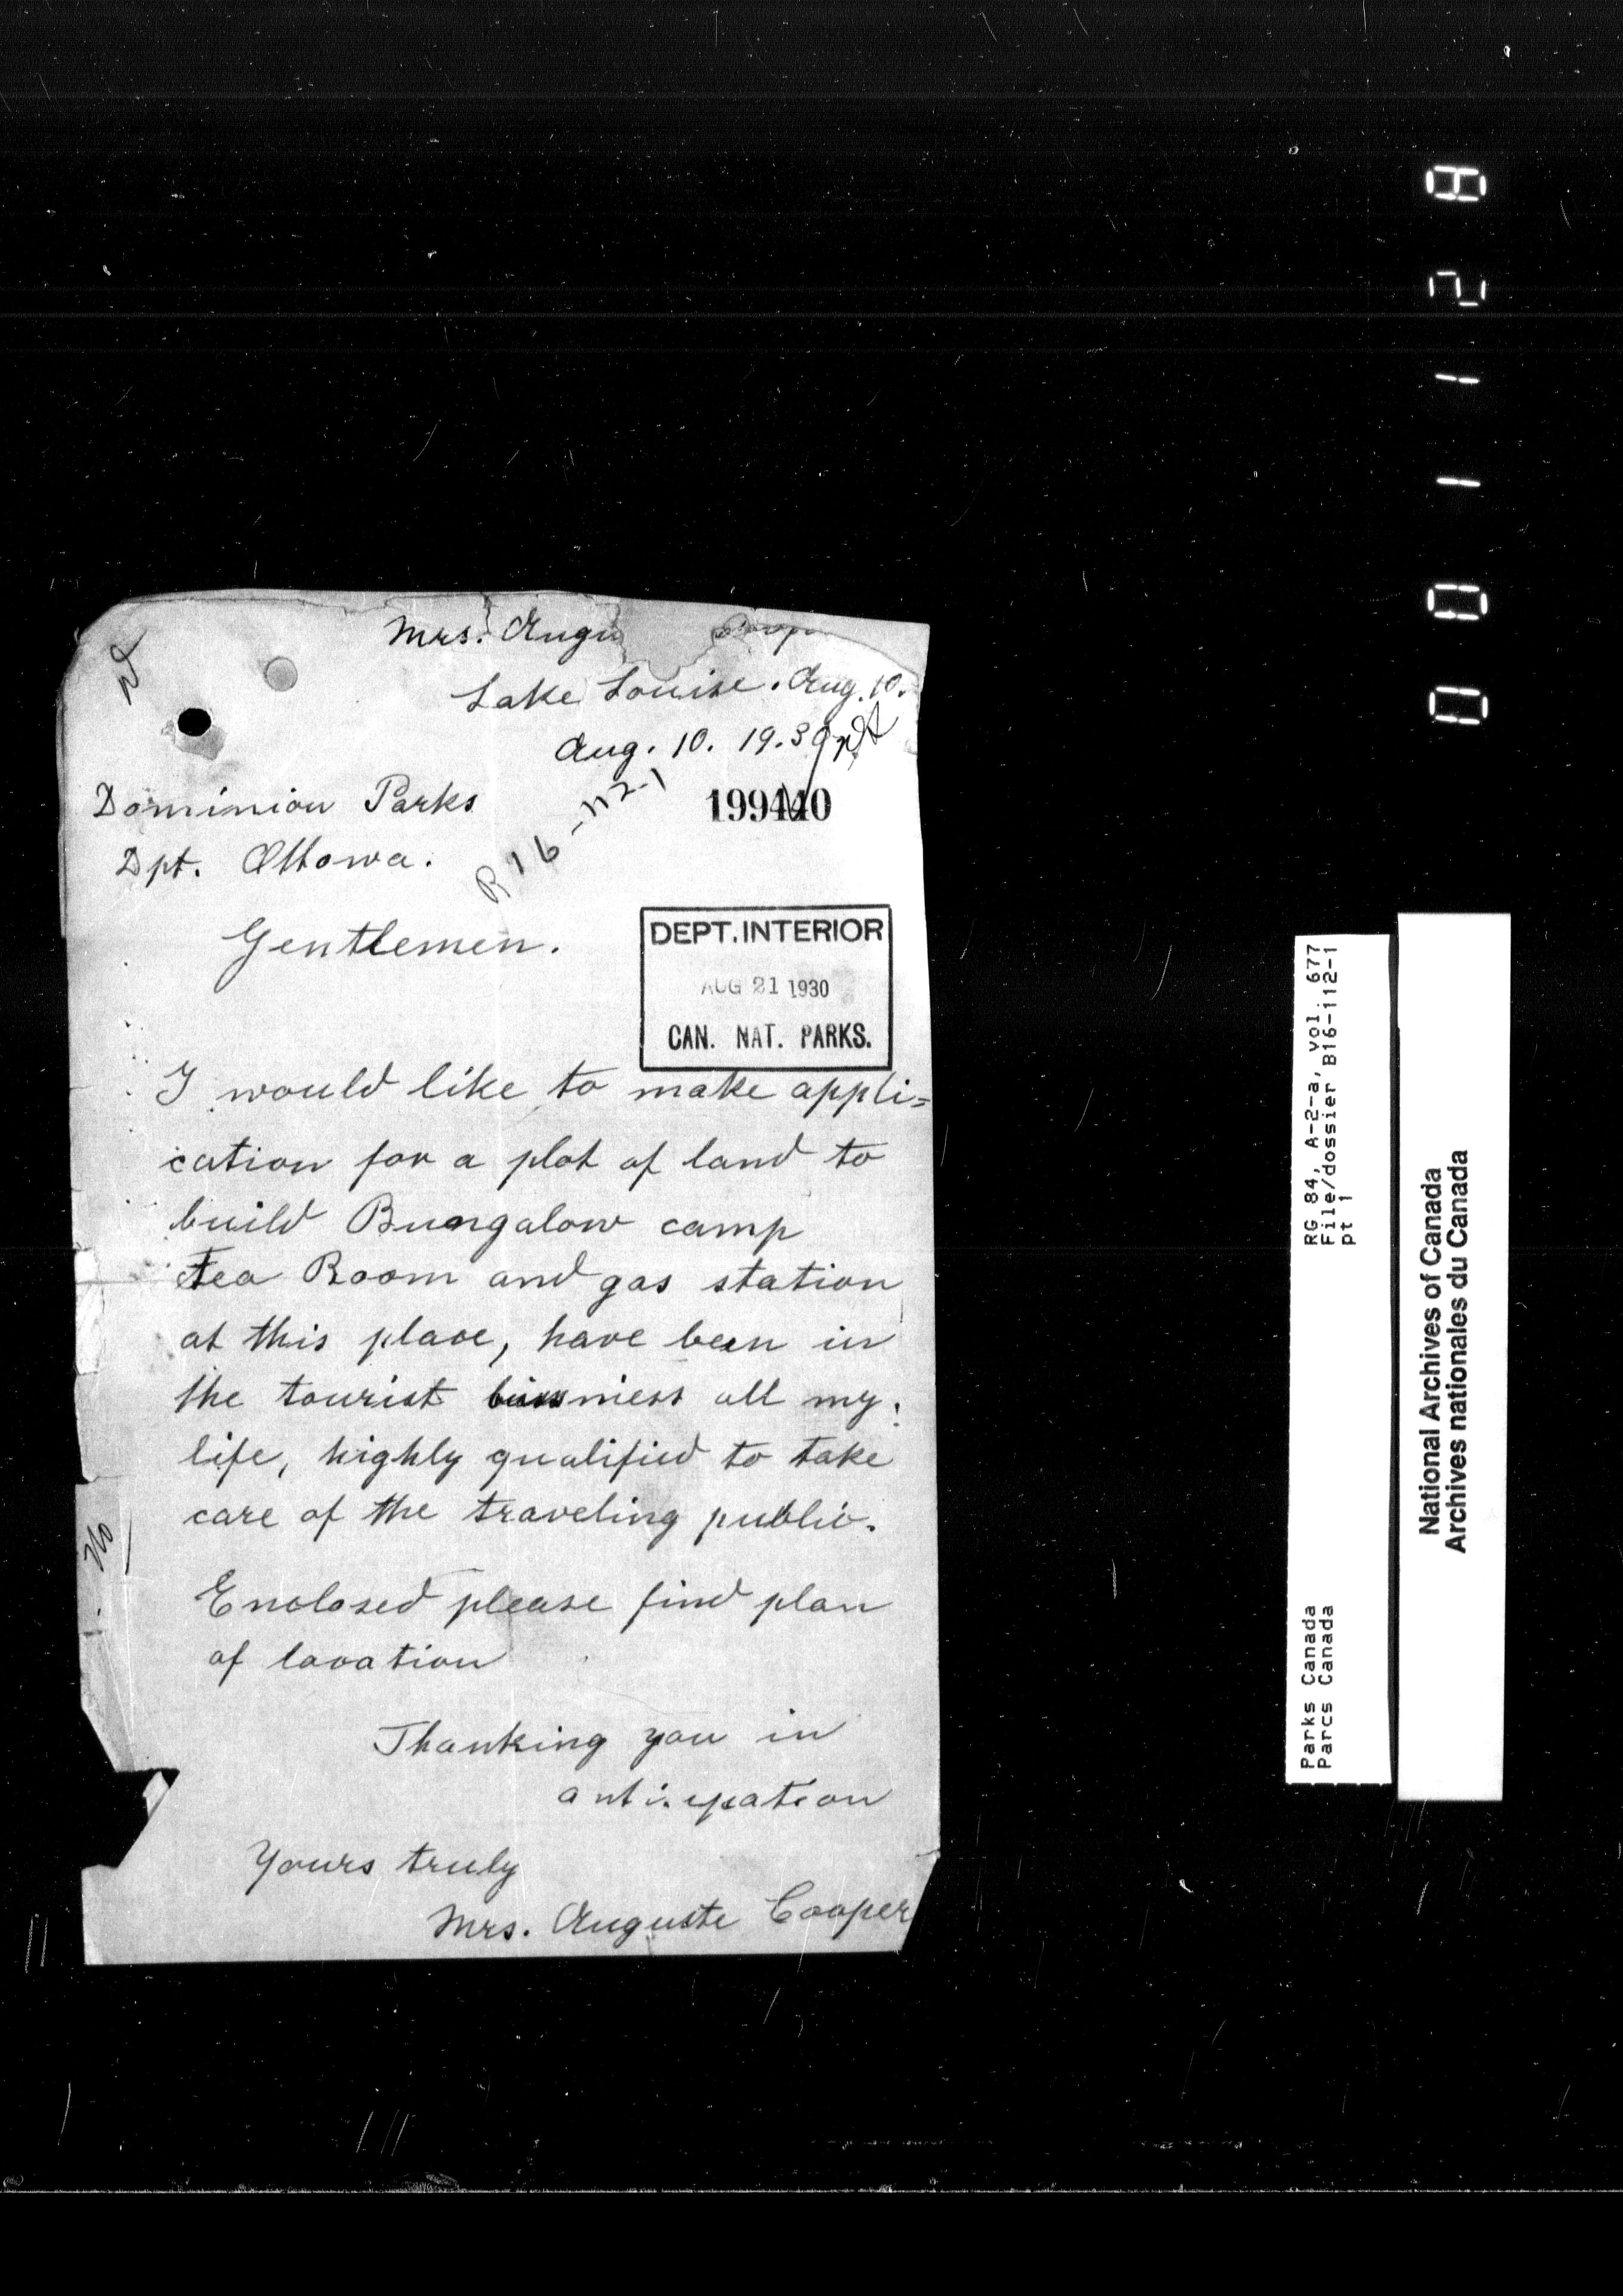 Mrs. Augu
Lake Louise. Aug. 10.
Aug. 10. 19.30
199440
Dominion Parks
Dpt. Ottowa.
R16-112-1
Gentlemen.
DEPT. INTERIOR
AUG 21 1930
CAN. NAT. PARKS.
I would like to make appli=
cation for a plot of land to
build Bungalow camp
Tea Room and gas station
at this place, have been in
the tourist bussniess all my
life, highly qualified to take
care of the traveling public.
Enclosed please find plan
of location
Thanking you in
anticipation
Yours truly
Mrs. Auguste Cooper
001128
RG 84, A-2-a, vol. 677
File/dossier B16-112-1
pt 1
Parks Canada
Parcs Canada
National Archives of Canada
Archives nationales du Canada